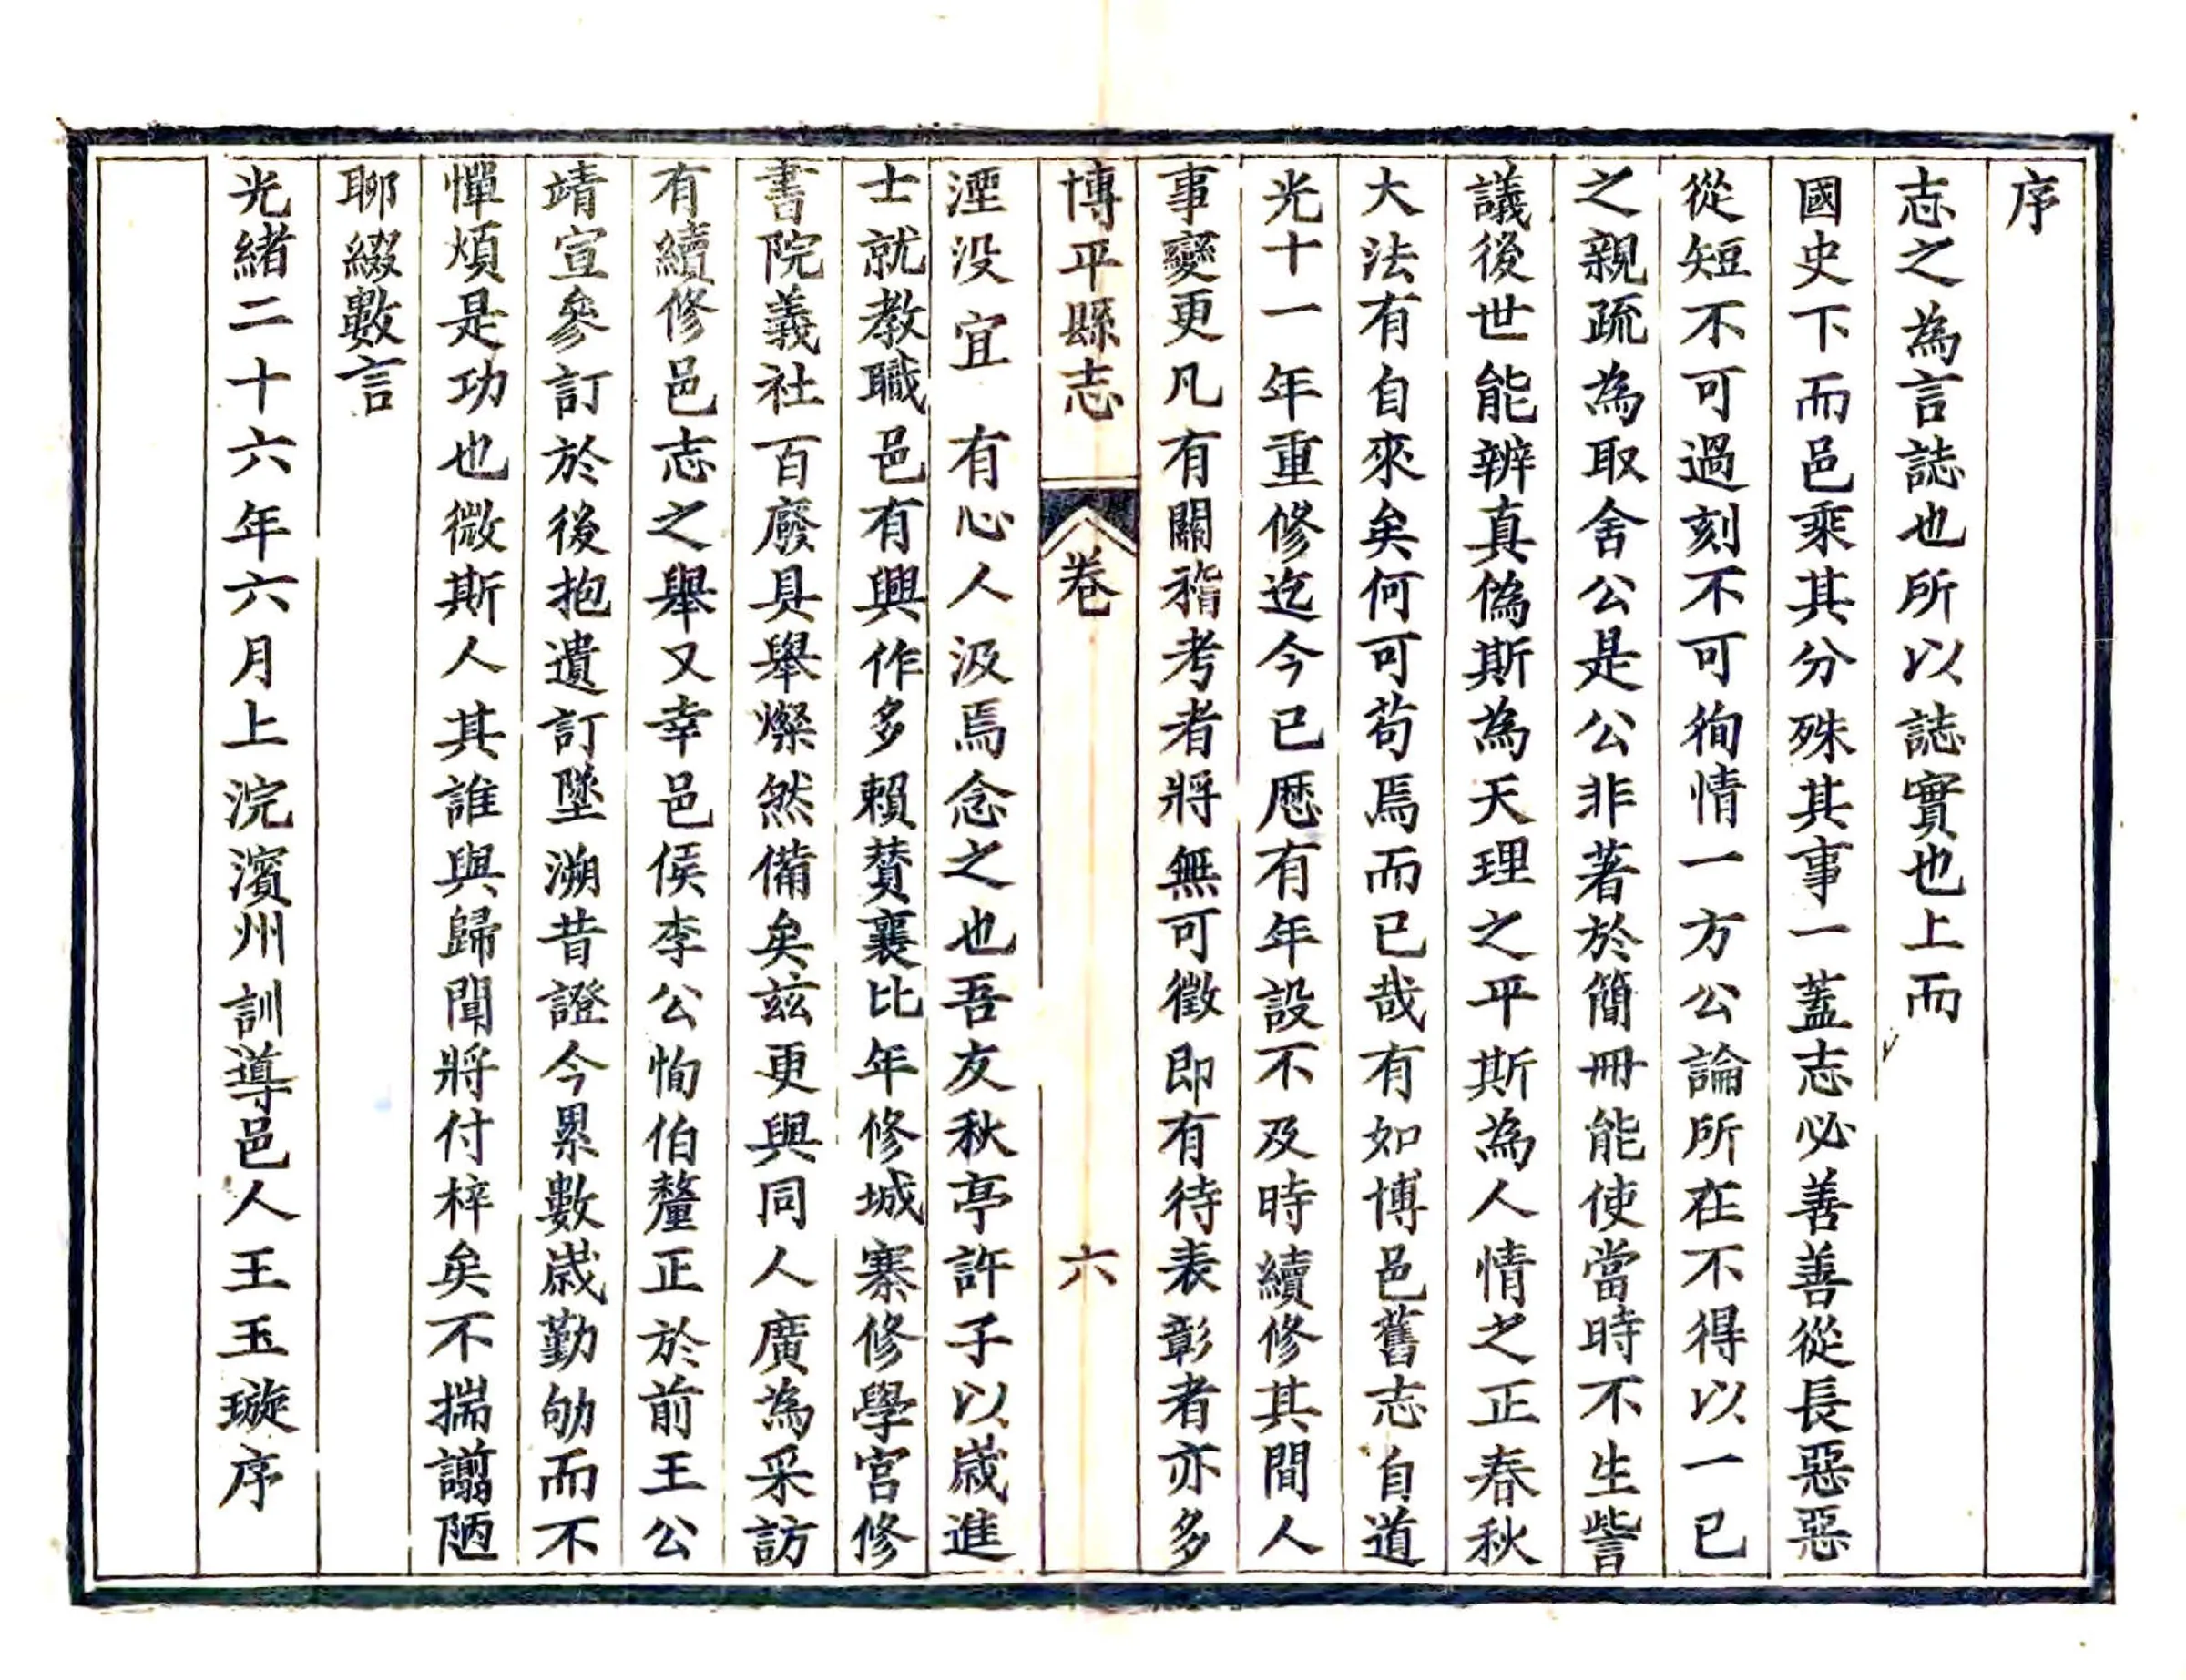 序
志之為言誌也所以誌實也上而
國史下而邑乘其分殊其事一蓋志必善善從長惡惡
從短不可過刻不可徇情一方公論所在不得以一已
之親疏為取舍公是公非著於簡冊能使當時不生訾
議後世能辨真偽斯為天理之平斯為人情之正春秋
大法有自來矣何可苟焉而已哉有如博邑舊志自道
光十一年重修迄今已歷有年設不及時續修其間人
事變更凡有關稽考者將無可徵即有待表彰者亦多
博平縣志 卷 六
湮没宜有心人汲焉念之也吾友秋亭許子以歲進
士就教職邑有興作多賴賛襄比年修城寨修學宮修
書院義社百廢具舉燦然備矣茲更與同人廣為采訪
有續修邑志之舉又幸邑侯李公恂伯釐正於前王公
靖宣參訂於後抱遺訂墜溯昔證今累數歲勤劬而不
憚煩是功也微斯人其誰與歸聞將付梓矣不揣譾陋
聊綴數言
光緒二十六年六月上浣濱州訓導邑人王玉璇序